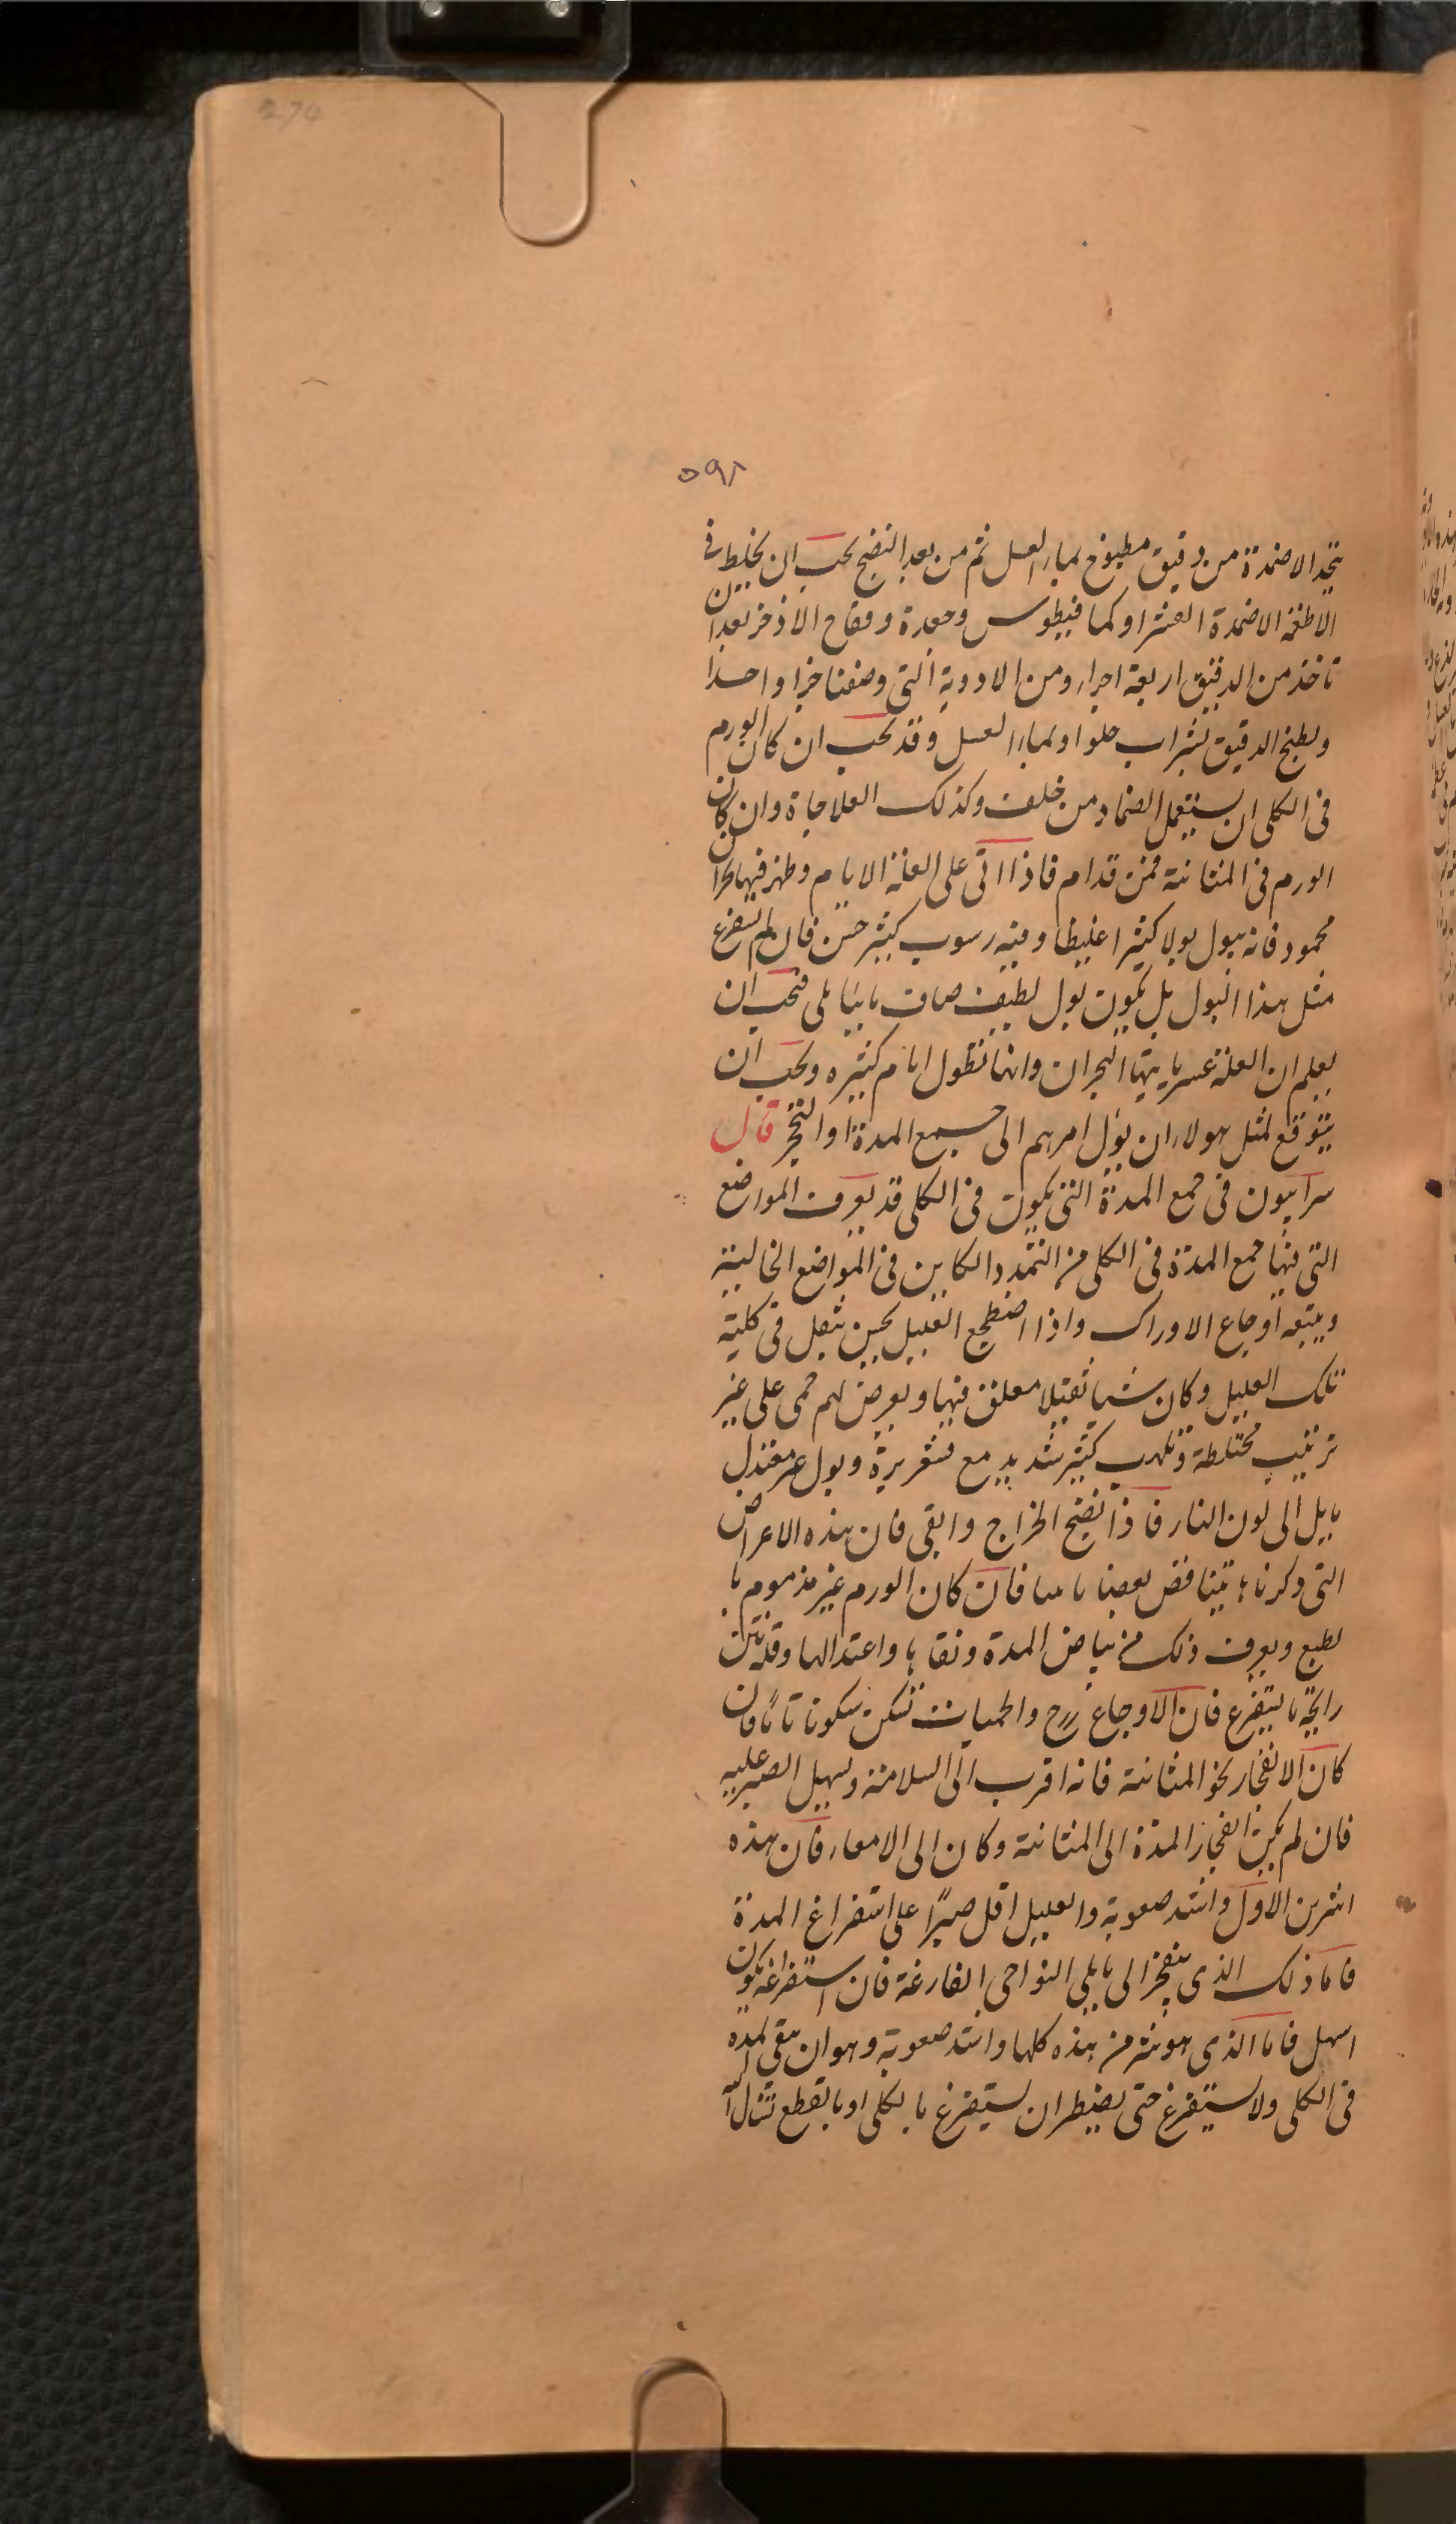 274
٥٩٨
يتخذ الاضمدة من دقيق مطبوخ بماء العسل ثم من بعد النضج يجب ان يخلط في
الاضمدة او كمافيطوس وجعدة وفقاح الاذخر بعد ان
تاخذ من الدقيق اربعة اجزاء ومن الادوية التي وصفنا جزا واحدا
ويطبخ الدقيق بشراب حلو او بماء العسل وقد يجب ان كان الورم
في الكلى ان يستعمل الضماد من خلف وكذلك العلاجاة وان كان
الورم في المثانة فمن قدام فاذا اتى على العلة الايام وظهر فيها بحران
محمود فانه يبول بولا كثيرا غليظا وفيه رسوب كثير حسن فان لم يستفرغ
مثل هذا البول بل يكون بول لطيف صاف مايى فيجب ان
يعلم ان العلة عسر ياتيها البحران وانها تطول ايام كثيره ويجب ان
يتوقع لمثل هولاء ان يول امرهم الى جمع المدة او التحجر قال
سرابيون في جمع المدة التي يكون في الكلى قد يعرف المواضع
التي فيها جمع المدة في الكلى من التمدد الكاين في المواضع الخالية
ويتبعه اوجاع الاوراك واذا اضطجع العليل يحس بثقل في كليته
تلك العليل وكان شيا ثقيلا معلق فيها ويعرض لهم حمى على غير
ترتيب مختلطة وتلهب كثير شديد مع قشعريرة وبول غير معتدل
مايل الى لون النار فاذا نضج الخراج وابقى فان هذه الاعراض
التي ذكرناها يتناقض بعضها فان كان الورم غير مذموم با
لطبع ويعرف ذلك من بياض المدة ونقاها واعتدالها وقلة نتن
رايحة ما يستفرغ فان الاوجاع والحميات تسكن سكونا تاما فان
كان الانفجار نحو المثانة فانه اقرب الى السلامة ويسهل الصبر عليه
فان لم يكن انفجار المدة الى المثانة وكان الى الامعاء فان هذه
اشر من الاول واشد صعوبة والعليل اقل صبرا على استفراغ المدة
فاما ذلك الذي ينفجر الى ما يلي النواحي الفارغة فان استفراغه يكون
اسهل فاما الذي هو شر من هذه كلها واشد صعوبة وهو ان يبقى المده
في الكلى ولا يستفرغ حتى يضطر ان يستفرغ بالكلى او بالقطع